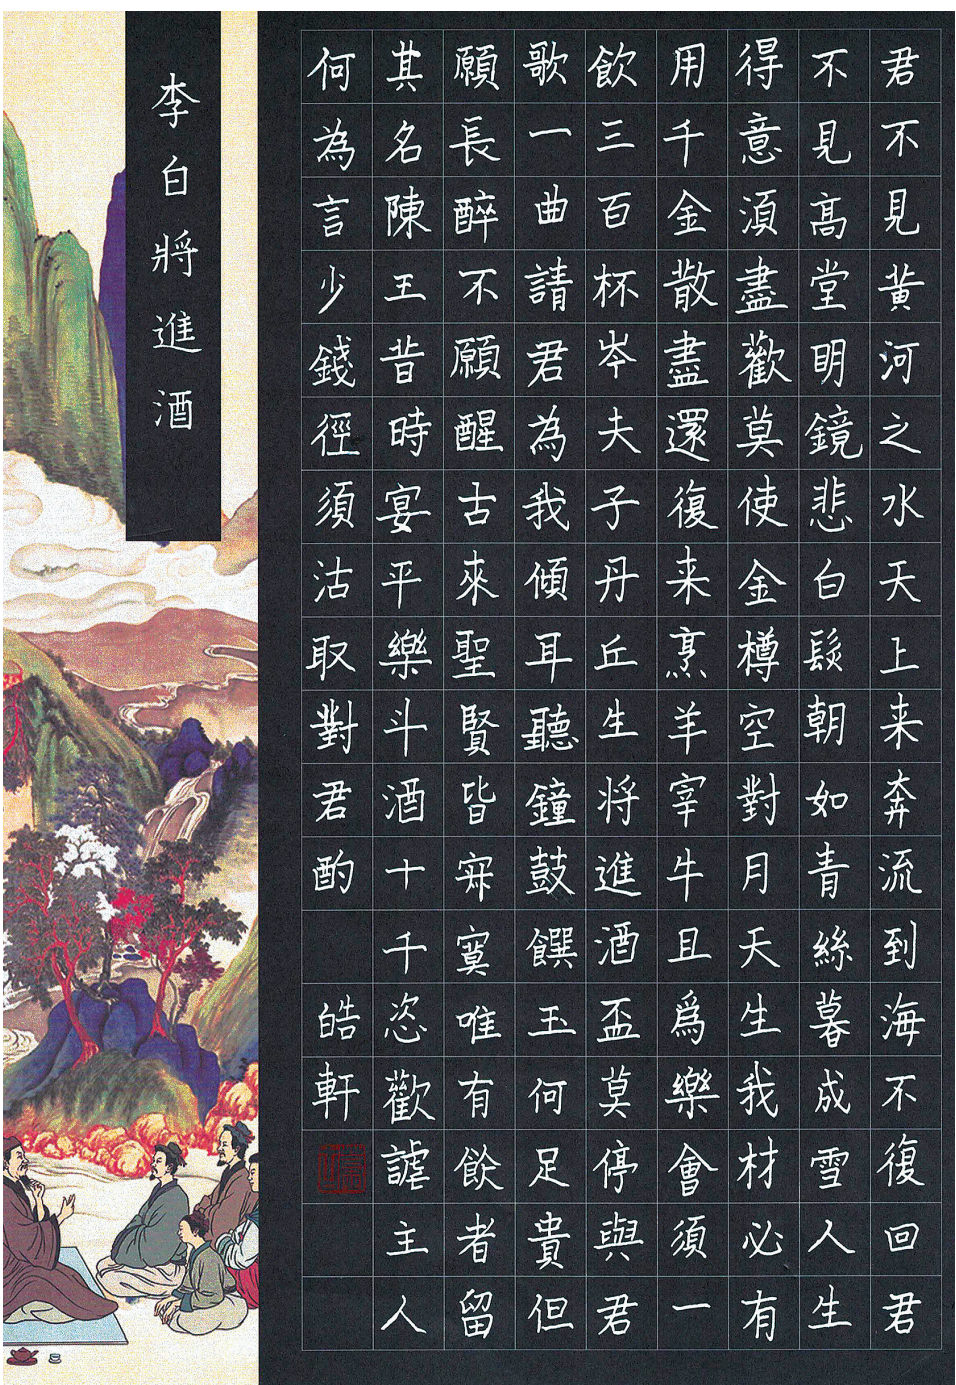 君不見黃河之水天上来奔流到海不復回君
不見高堂明鏡悲白髮朝如青絲暮成雪人生
得意須盡歡莫使金樽空對月天生我材必有
用千金散盡還復来烹羊宰牛且爲樂會須一
飲三百杯岑夫子丹丘生将進酒盃莫停與君
歌一曲請君為我傾耳聽鐘鼓饌玉何足貴但
願長醉不願醒古來聖賢皆寂寞唯有飲者留
其名陳王昔時宴平樂斗酒十千恣歡謔主人
何為言少錢徑須沽取對君酌 皓軒
李白將進酒